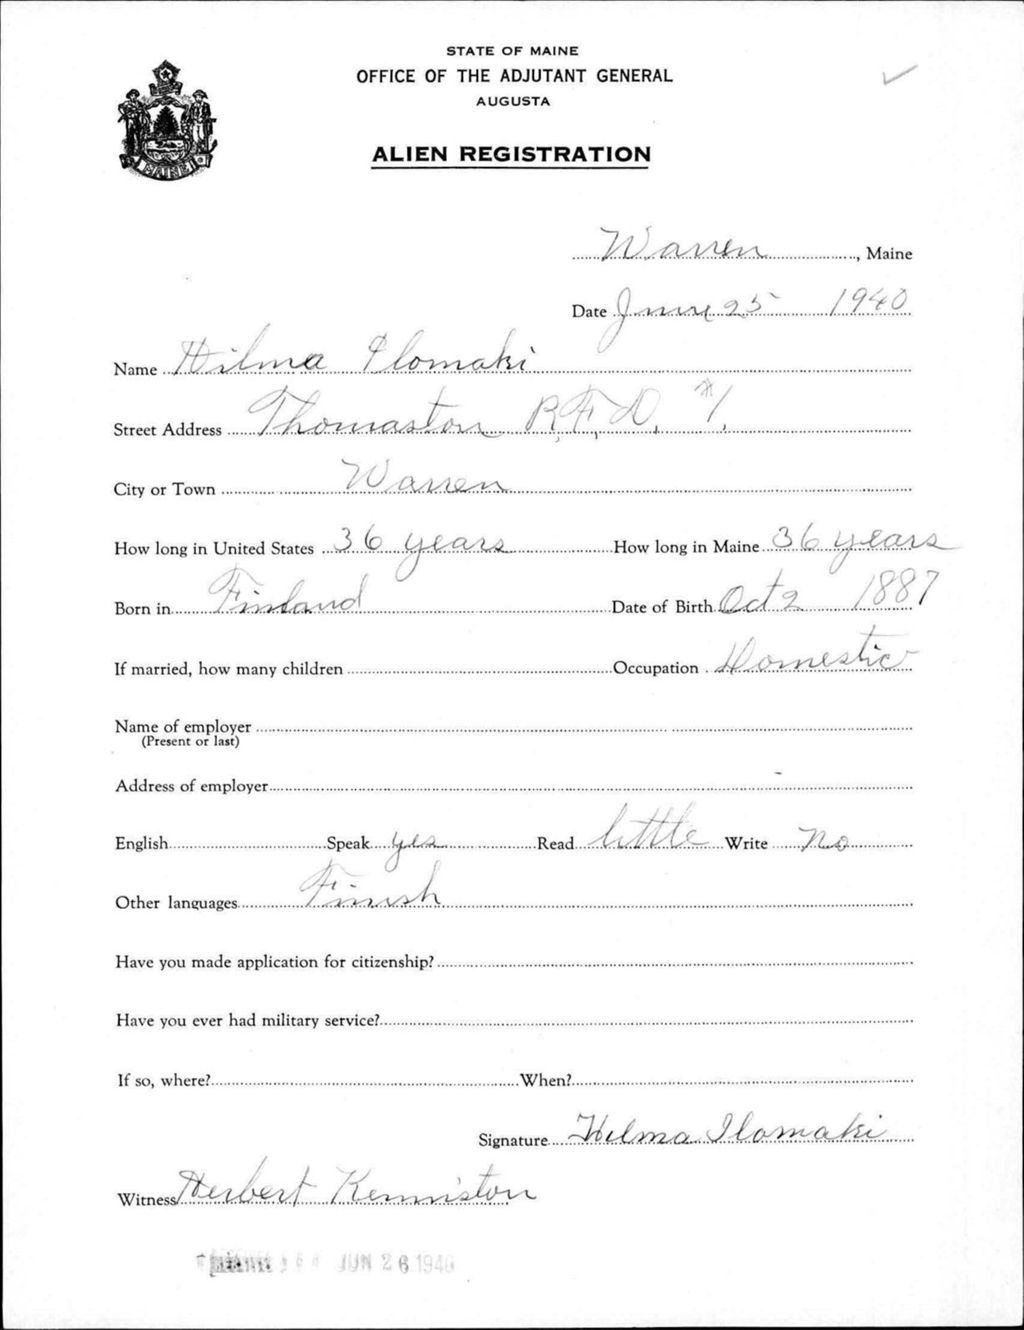 STATE OF MAINE
OFFICE OF THE ADJUTANT GENERAL
AUGUSTA
MAINE
ALIEN REGISTRATION
Warren, Maine
Date June 25 1940
Name Hilma Ilomaki
Street Address Thomaston R.F.D. #1.
City or Town Warren
How long in United States 36 years How long in Maine 36 years
Born in Finland Date of Birth Oct 2 1887
If married, how many children Occupation Domestic
Name of employer
(Present or last)
Address of employer
English Speak yes Read little Write no
Other languages Finish
Have you made application for citizenship?
Have you ever had military service?
If so, where? When?
Signature Hilma Ilomaki
Witness Herbert Kenniston
JUN 26 1940